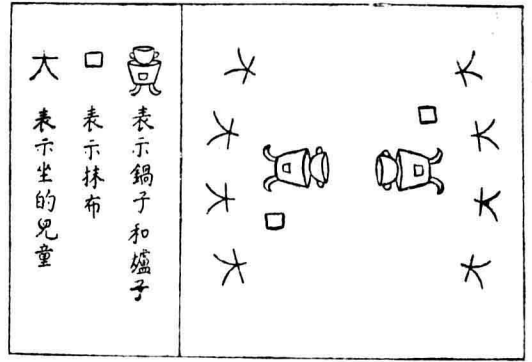 表示鍋子和爐子
表示抹布
大 表示坐的兒童